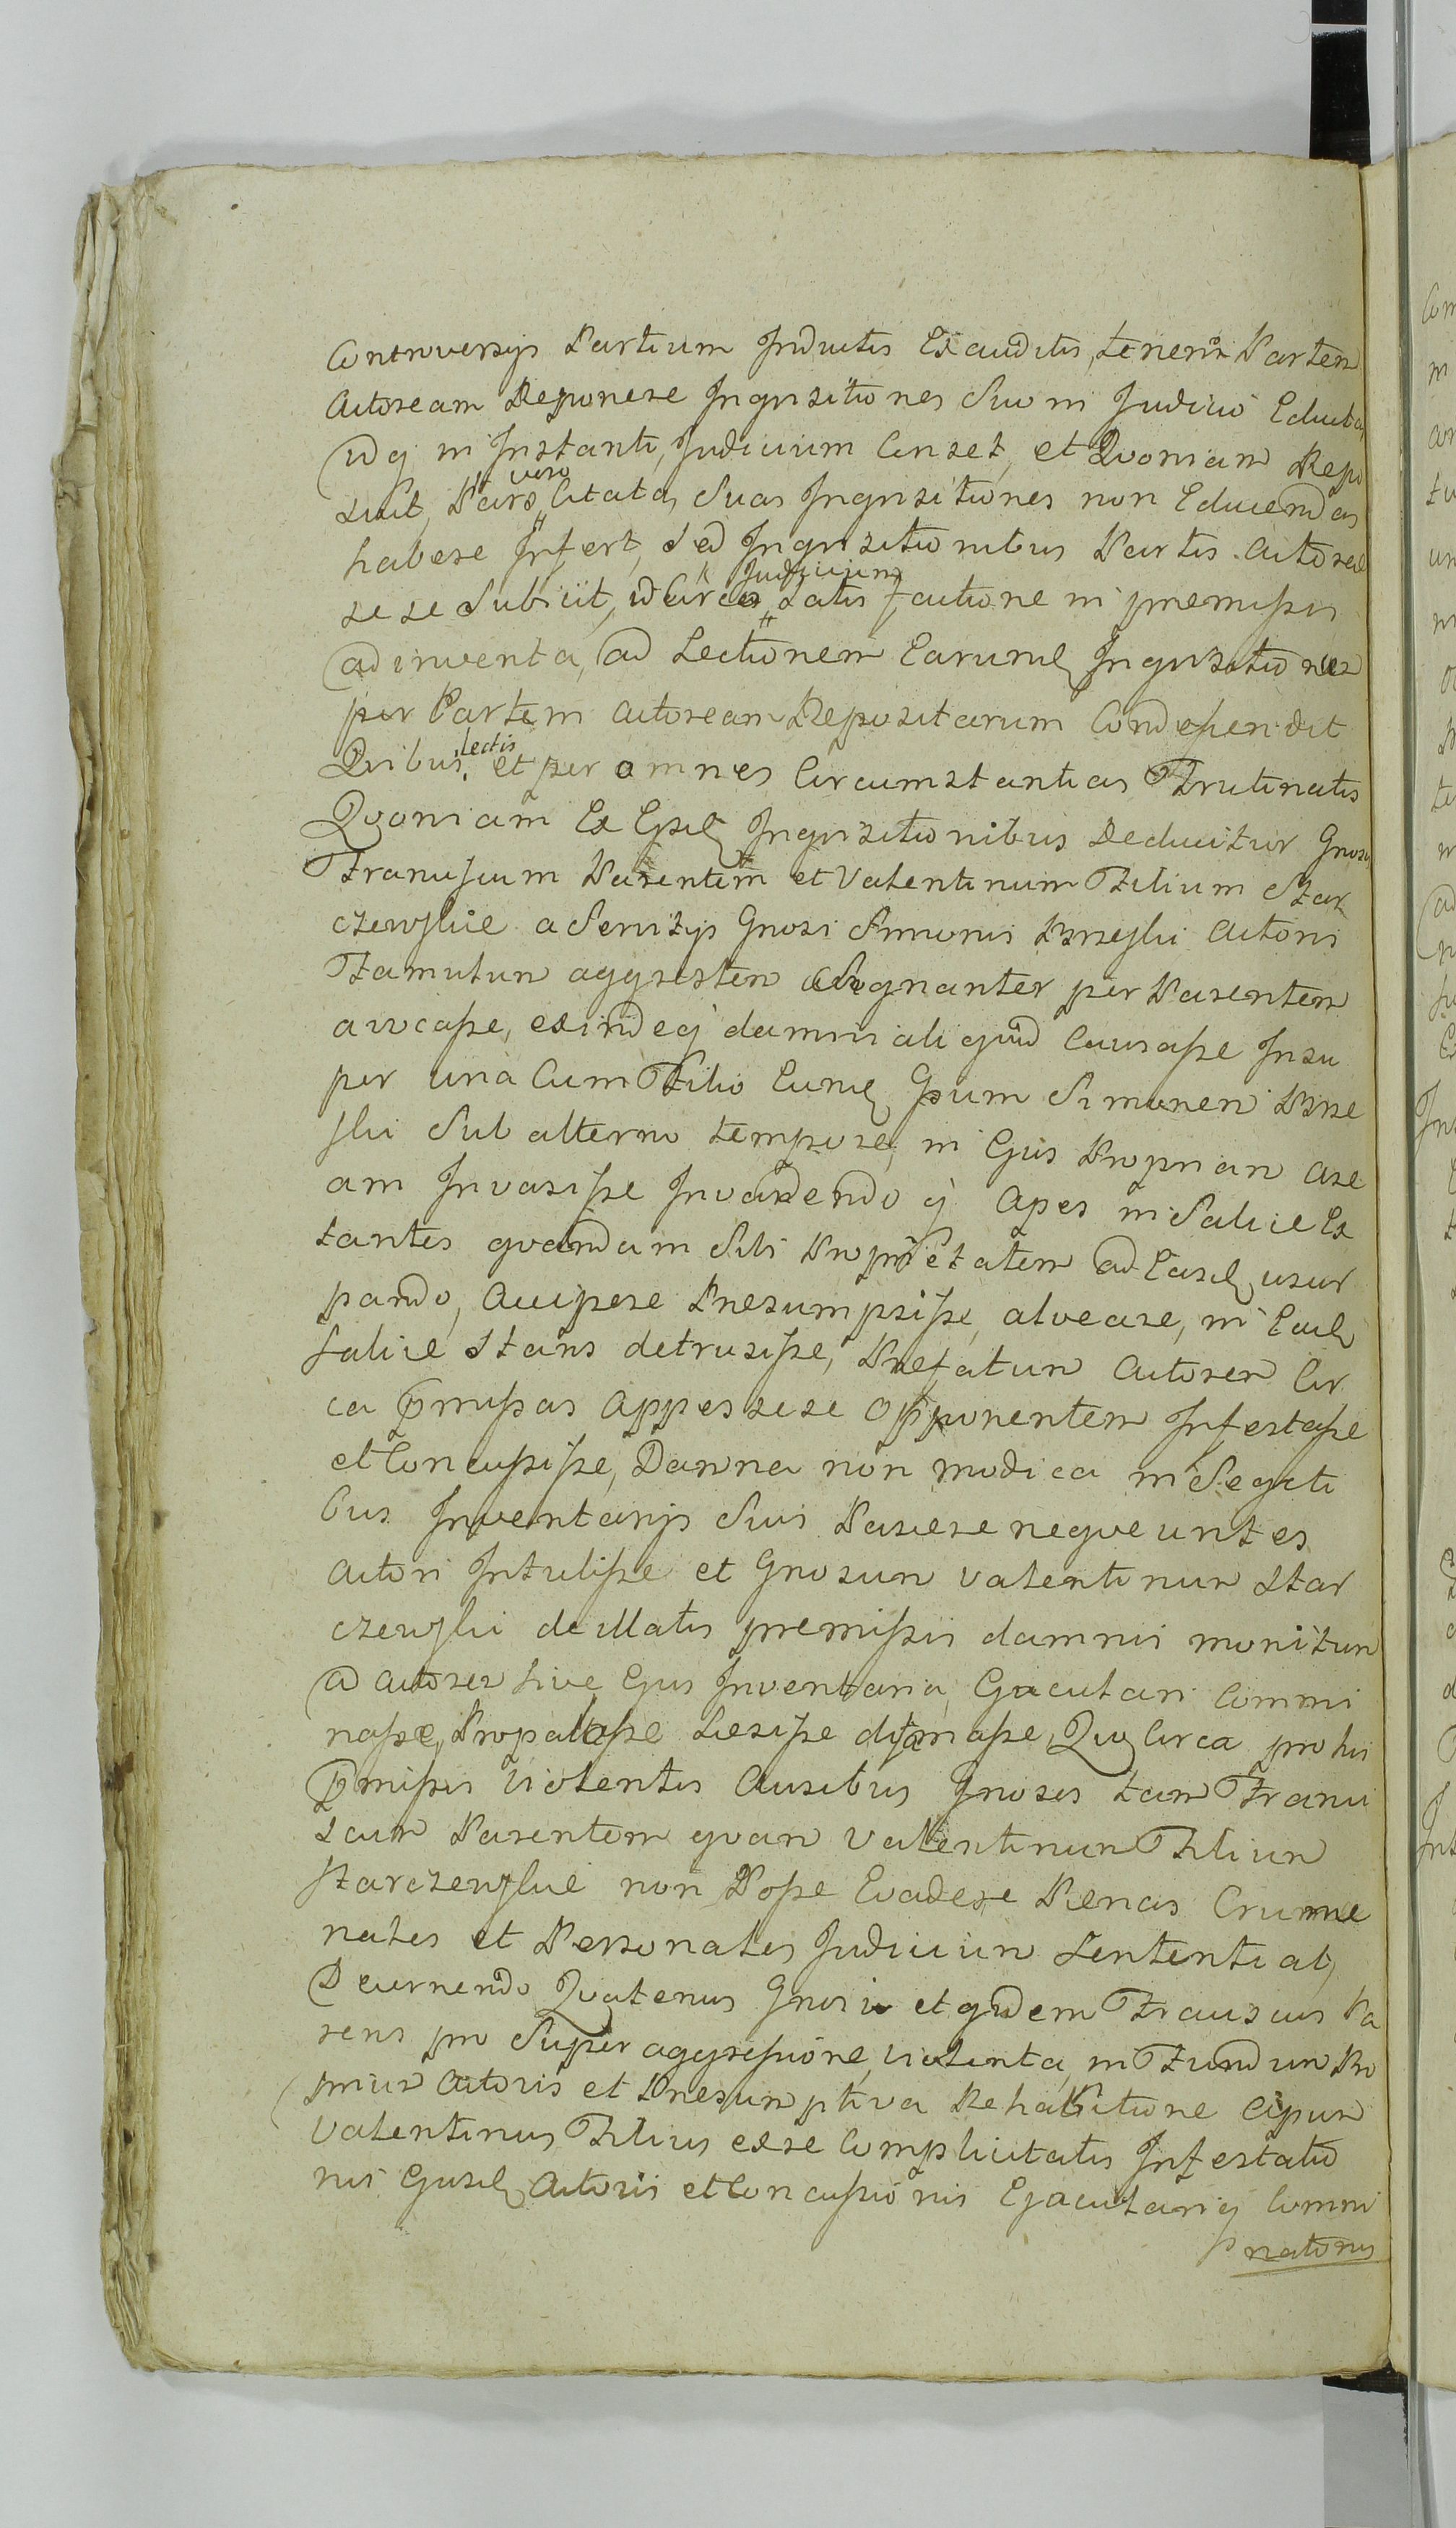 Controversijs Partium Inductis Exauditis, teneri Partem
Actoream Reponere Inqvisitiones Suo in Judicio Eductas
idq in Instanti, Judicium Censet, et Qvoniam Repo
suit, Pars vero Citata, Suas Inqvisitiones non Educendas
habere Infert, sed Inqvisitionibus Partis Actoreae
sese Subiicit, idcirco Judicium satis factione in premissis
adinventa, ad Lectionem Earund Inqvisitionum
per Partem Actoream Repositarum Condescendit
Qvibus lectis et per omnes Circumstantias Trutinatis
Qvoniam Ex Iisd Inqvisitionibus Deducitur Gnosu
Franciscum Parentem et Valentinum Filium Star
czewskie a Servitijs Gnosi Simonis Actoris
Famulum aggrestem per Parentem
avocasse, exindeq damni aliqvid Causasse Insu
per una Cum Filio Eund Ipsum Simonem
ski Sub alterno tempore, in Ejus Propriam are
am Invasisse Invadendo q Apes in Salice Ex
tantes qvandam Sibi Proprietatem ad Easd usur
pando, Accipere Presumpsisse, alveare, in Ead
salice stans detrusisse, Prefatum Actorem Cir
ca pmissas Appes sese Opponentem Infestasse
et Concussisse, Damna non modica in Segeti
bus Inventarijs Suis Parcere neqve untes
Actori Intulisse et Gnosum Valentinum Star
czewski de illatis premissis damnis monitum
ad Actorem sive Ejus Inventaria, Ejaculari Commi
nasse, Propalasse Lesisse difamasse, Qvocirca pro his
pmissis violentis Ausibus Gnosos tam Franci
scum Parentem qvam Valentinum Filium
Starczewskie non Posse Evadere Penas Crimi
nales et Personales Judicium Sententiat,
Decernendo Qvatenus Gnosi et qvidem Franciscus Pa
rens pro Super aggressione, violenta, in Fundum Pro
prium Actoris et Presumptiva Rehabitione Apum
Valentinus Filius ex re Complicitatis Infestatio
nis Ejusd Actoris et Concussionis Ejaculariq Commi
nationis